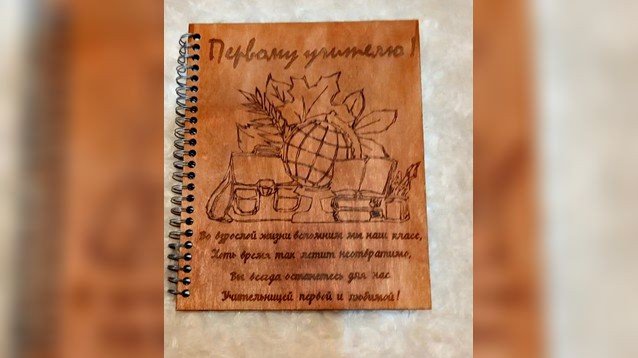 Первому учителю!
Во взрослой жизни вспомним мы наш класс,
Хоть время так летит неотвратимо,
Вы всегда останетесь для нас
Учительницей первой и любимой!